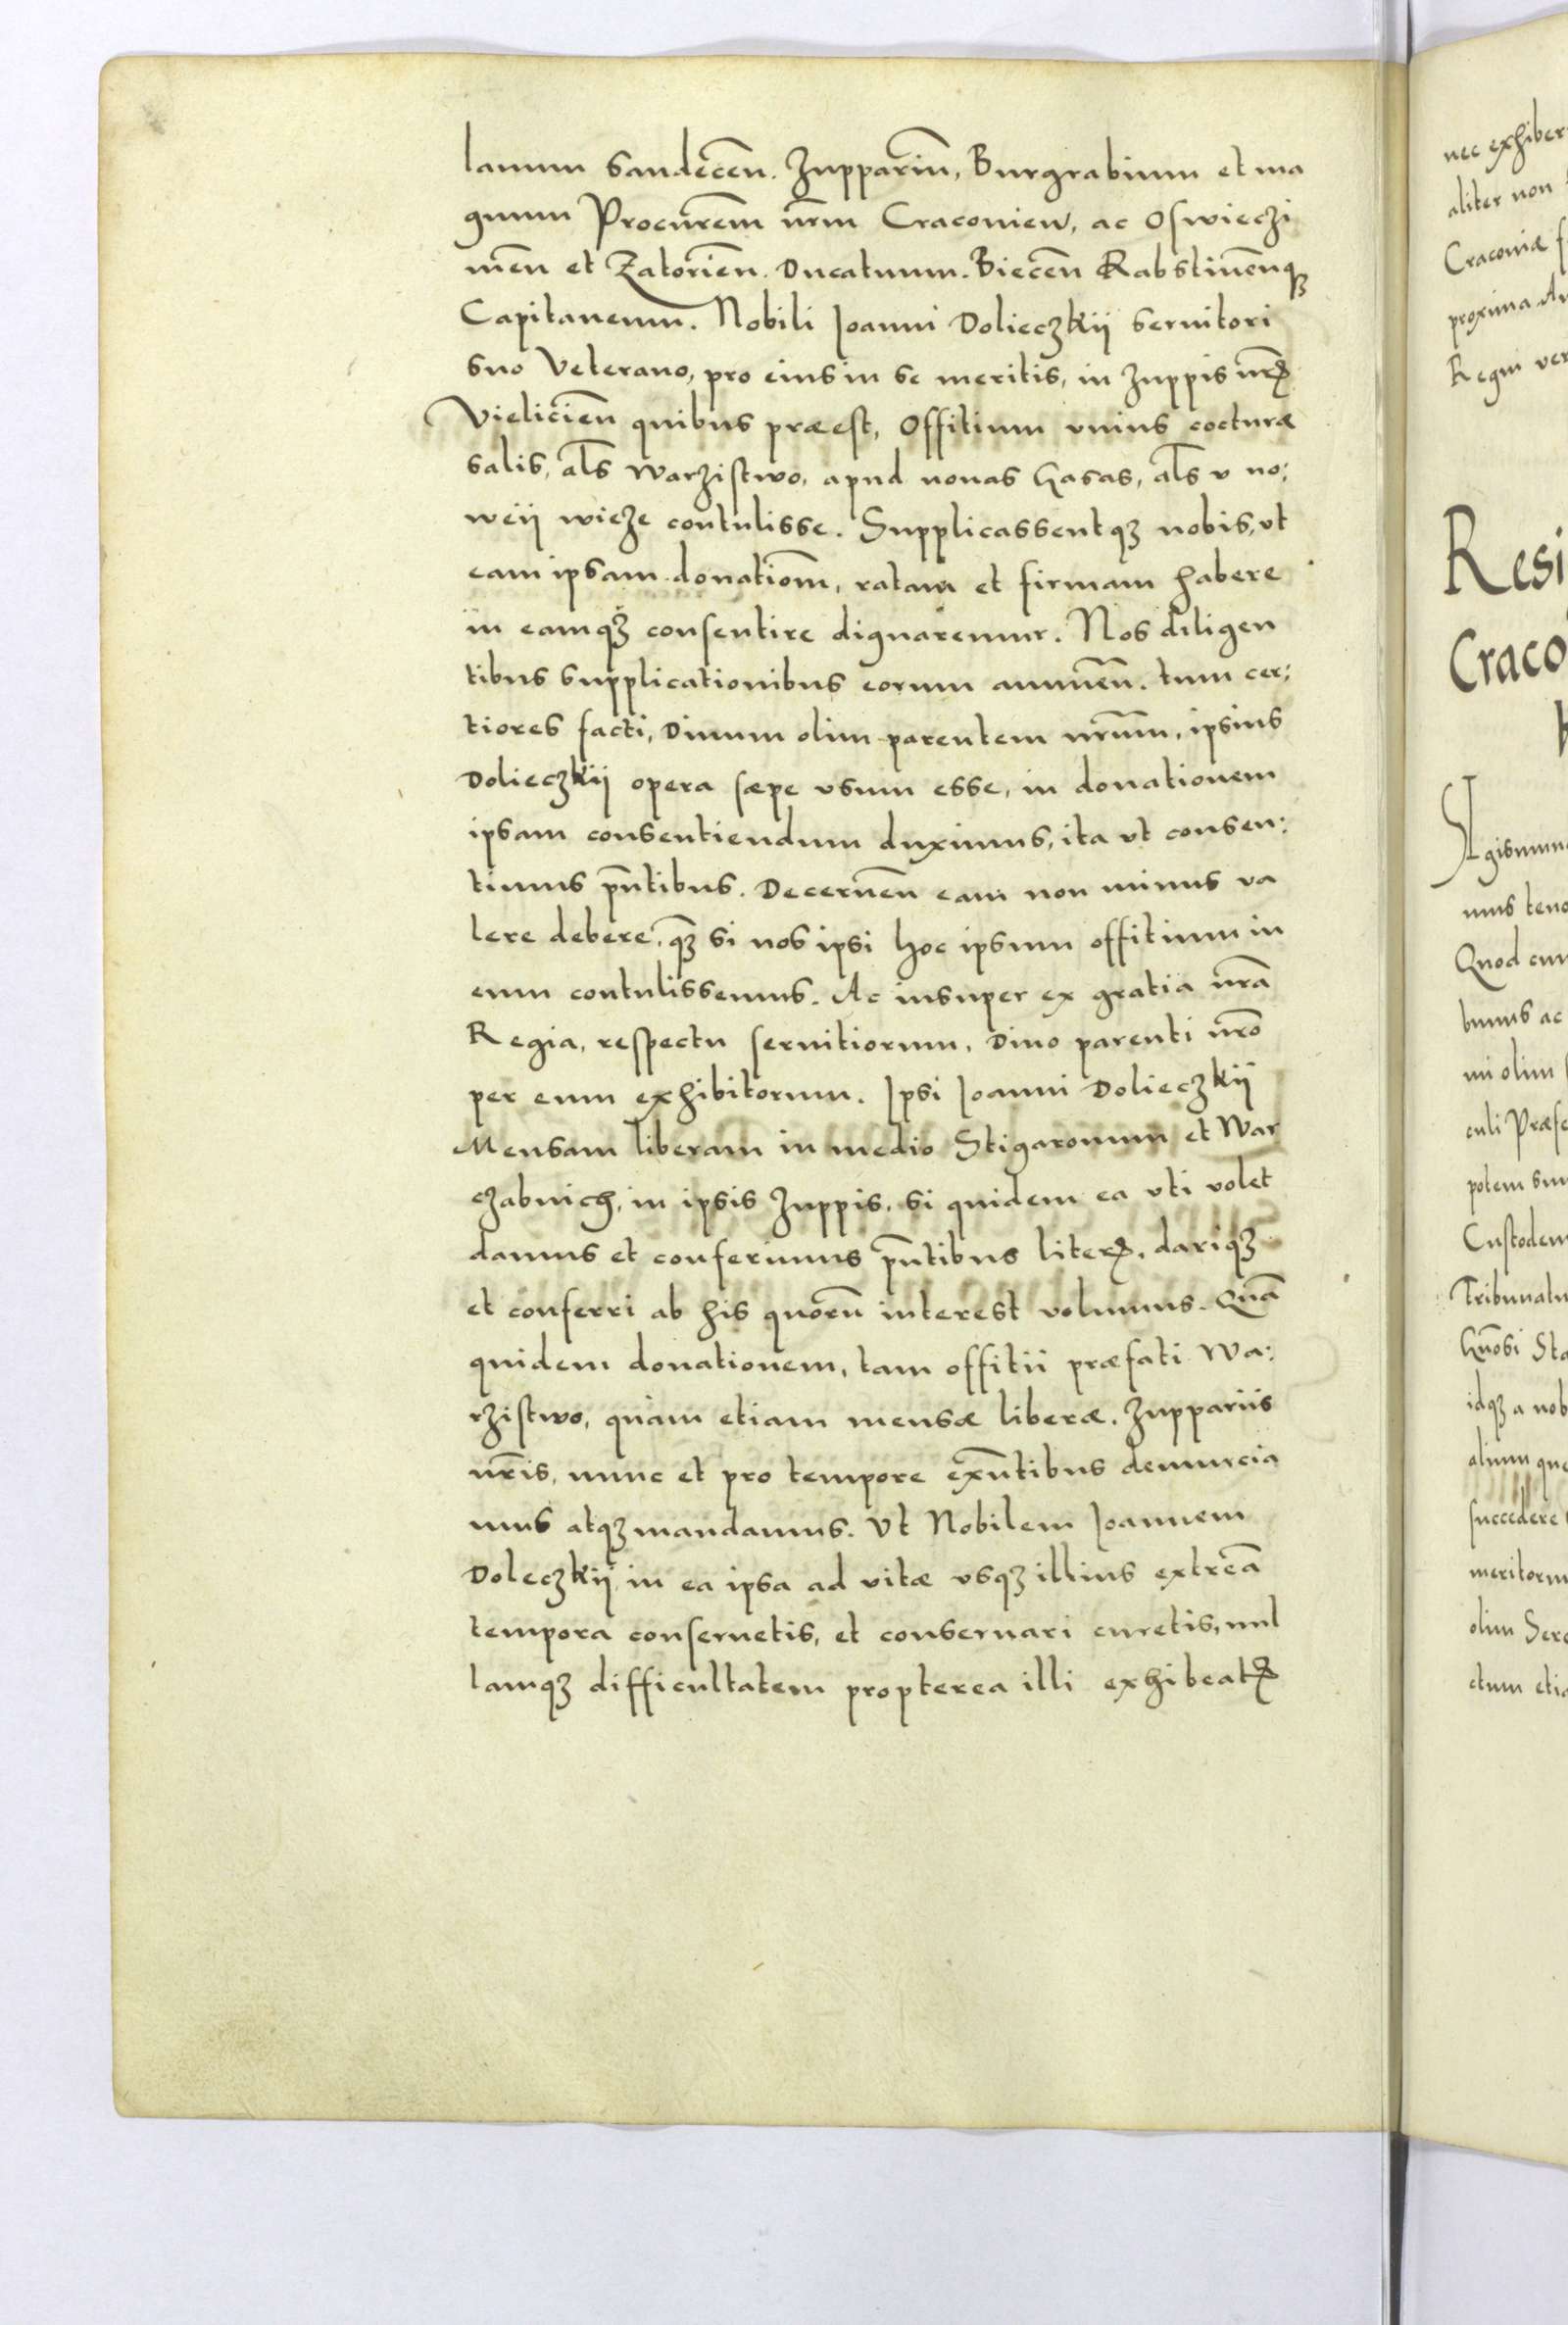 lanum Sandecen̄. Zuppariū, Burgrabium et ma
gnum Procurem̄ nr̄m Craconien, ac Oswieczi
men̄ et Zatorien̄. Ducatuum. Biecen̄ Rabstinen̄qꝫ
Capitaneum. Nobili Joanni Dolieczkii seruitori
suo Veterano, pro eius in se meritis, in Zuppis nr̄ꝭ
Vielicien̄ quibus præest, Offitium vnius cocturæ
salis, al̄s warzistwo, apud nouas Casas, al̄s v no:
weii wieze contulisse. Supplicassentqꝫ nobis, vt
eam ipsam donatiom̄, ratam et firmam habere
in eamqꝫ consentire dignaremur. Nos diligen
tibus supplicationibus eorum annuen̄. tum cer:
tiores facti, Diuum olim parentem nr̄um, ipsius
Dolieczkii opera sæpe vsum esse, in donationem
ipsam consentiendum duximus, ita vt consen:
timus pn̄tibus. Decernen̄ eam non minus va
lere debere, qꝫ̄ si nos ipsi hoc ipsum offitium in
eum contulissemus. Ac insuper ex gratia nr̄a
Regia, respectu seruitiorum, Diuo parenti nr̄o
per eum exhibitorum. Ipsi Joanni Dolieczkii
Mensam liberam in medio Stigaronum et War
czabnich, in ipsis Zuppis, si quidem ea vti volet
damus et conferimus pn̄tibus literꝭ, dariqꝫ
et conferri ab his quorū interest volumus. Quā
quidem donationem, tam offitii præfati Wa:
rzistwo, quàm etiam mensæ liberæ, Zuppariis
nr̄is, nunc et pro tempore exn̄tibus denuncia
mus atqꝫ mandamus. Vt Nobilem Joannem
Doleczkii in ea ipsa ad vitæ vsqꝫ illius extreā
tempora conseruetis, et conseruari curetis, nul
lamqꝫ difficultatem propterea illi exhibeatꝭ
nec exhiber
aliter non
Craconiæ
proxima
Regni ver
Resi
Craco
gismun
mus teno
Quod cum
bimus ac
mi olim
culi Præfe
potem
Custodem
Tribunatu
idqꝫ a nob
alium que
succedere
meritorum
olim Sere
ctum etia